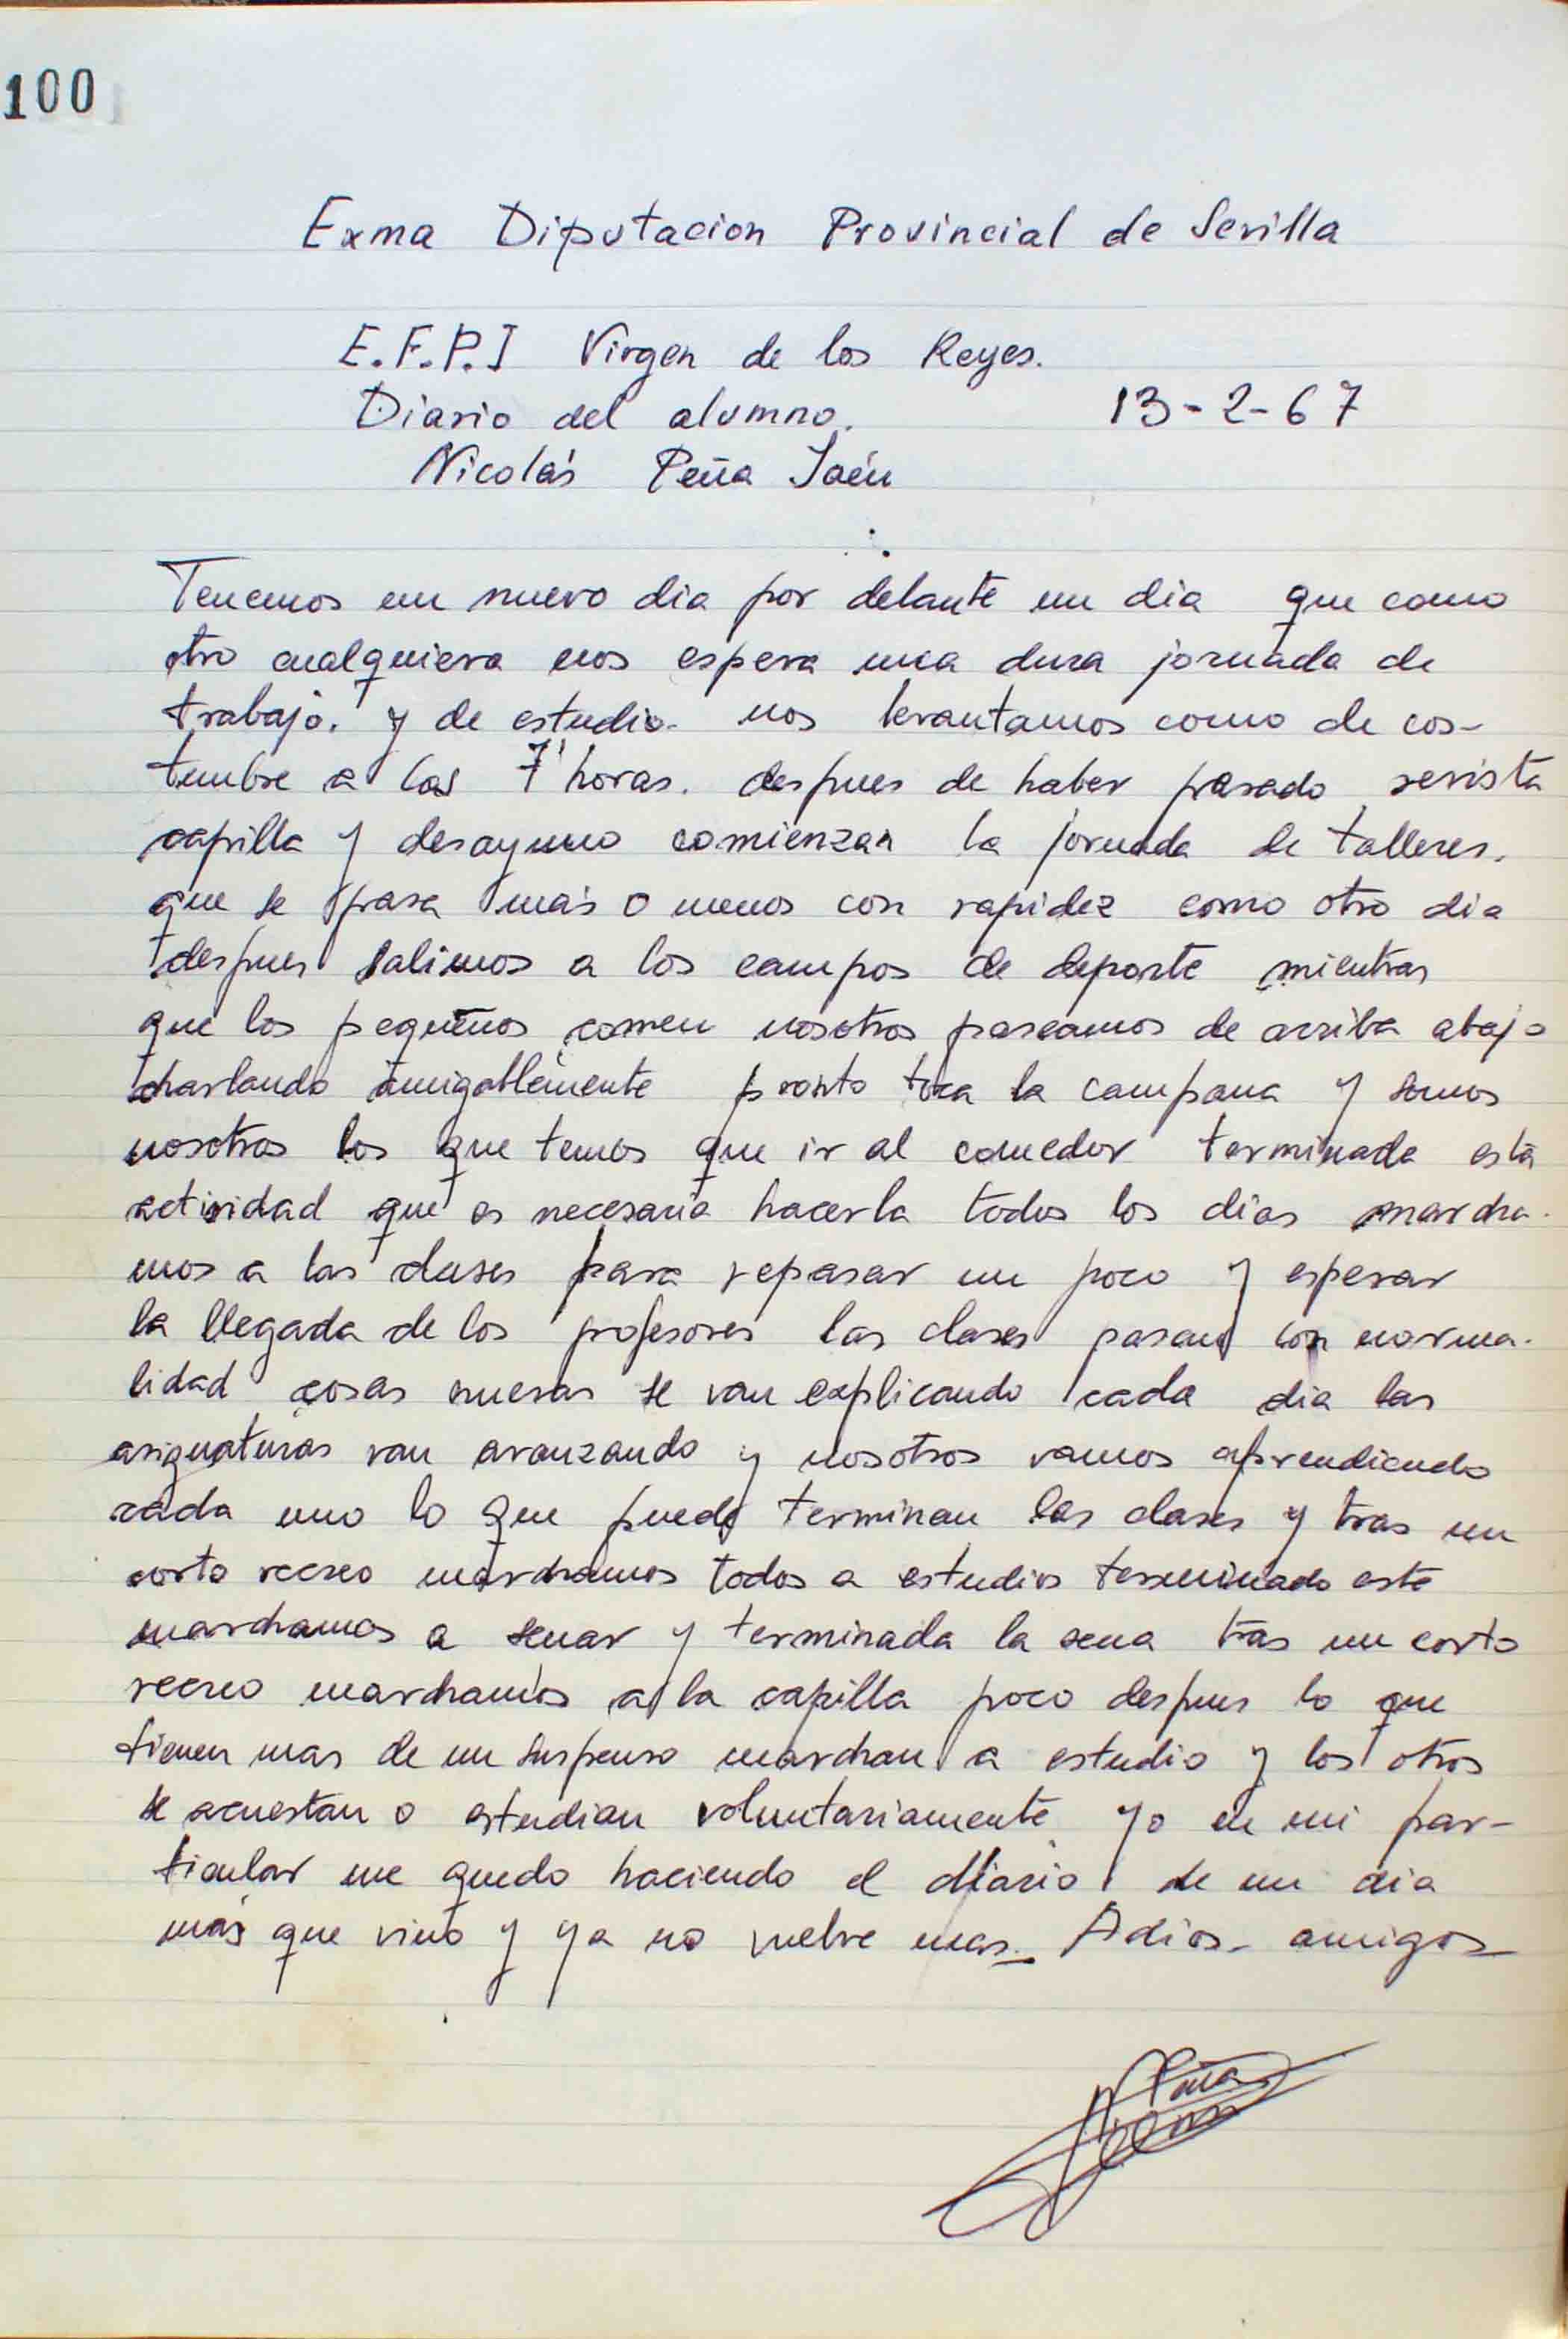 100
Exma Diputacion Provincial de Sevilla
E.F.P.I Virgen de los Reyes.
Diario del alumno. 13-2-67
Nicolás Peña Jaén
Tenemos un nuevo dia por delante un dia que como
otro cualquiera nos espera una dura jornada de
trabajo. y de estudio. nos levantamos como de cos-
tumbre a las 7 horas. despues de haber pasado revista
capilla y desayuno comienzan la jornada de talleres.
que se pasa más o menos con rapidez como otro dia
despues salimos a los campos de deporte mientras
que los pequeños comen nosotros paseamos de arriba abajo
charlando amigablemente pronto toca la campana y somos
nosotros los que temos que ir al comedor terminada está
actividad que es necesaria hacerla todos los dias marcha-
mos a las clases para repasar un poco y esperar
la llegada de los profesores las clases pasan con norma-
lidad cosas nuevas se van explicando cada dia las
asignaturas van avanzando y nosotros vamos aprendiendo
cada uno lo que puede terminan las clases y tras un
corto recreo marchamos todos a estudios terminado este
marchamos a senar y terminada la sena tras un corto
recreo marchamos a la capilla poco despues lo que
tienen mas de un suspenso marchan a estudio y los otros
se acuestan o estudian voluntariamente yo en mi par-
ticular me quedo haciendo el diario de un dia
más que vino y ya no vuelve mas. Adios- amigos
Peña